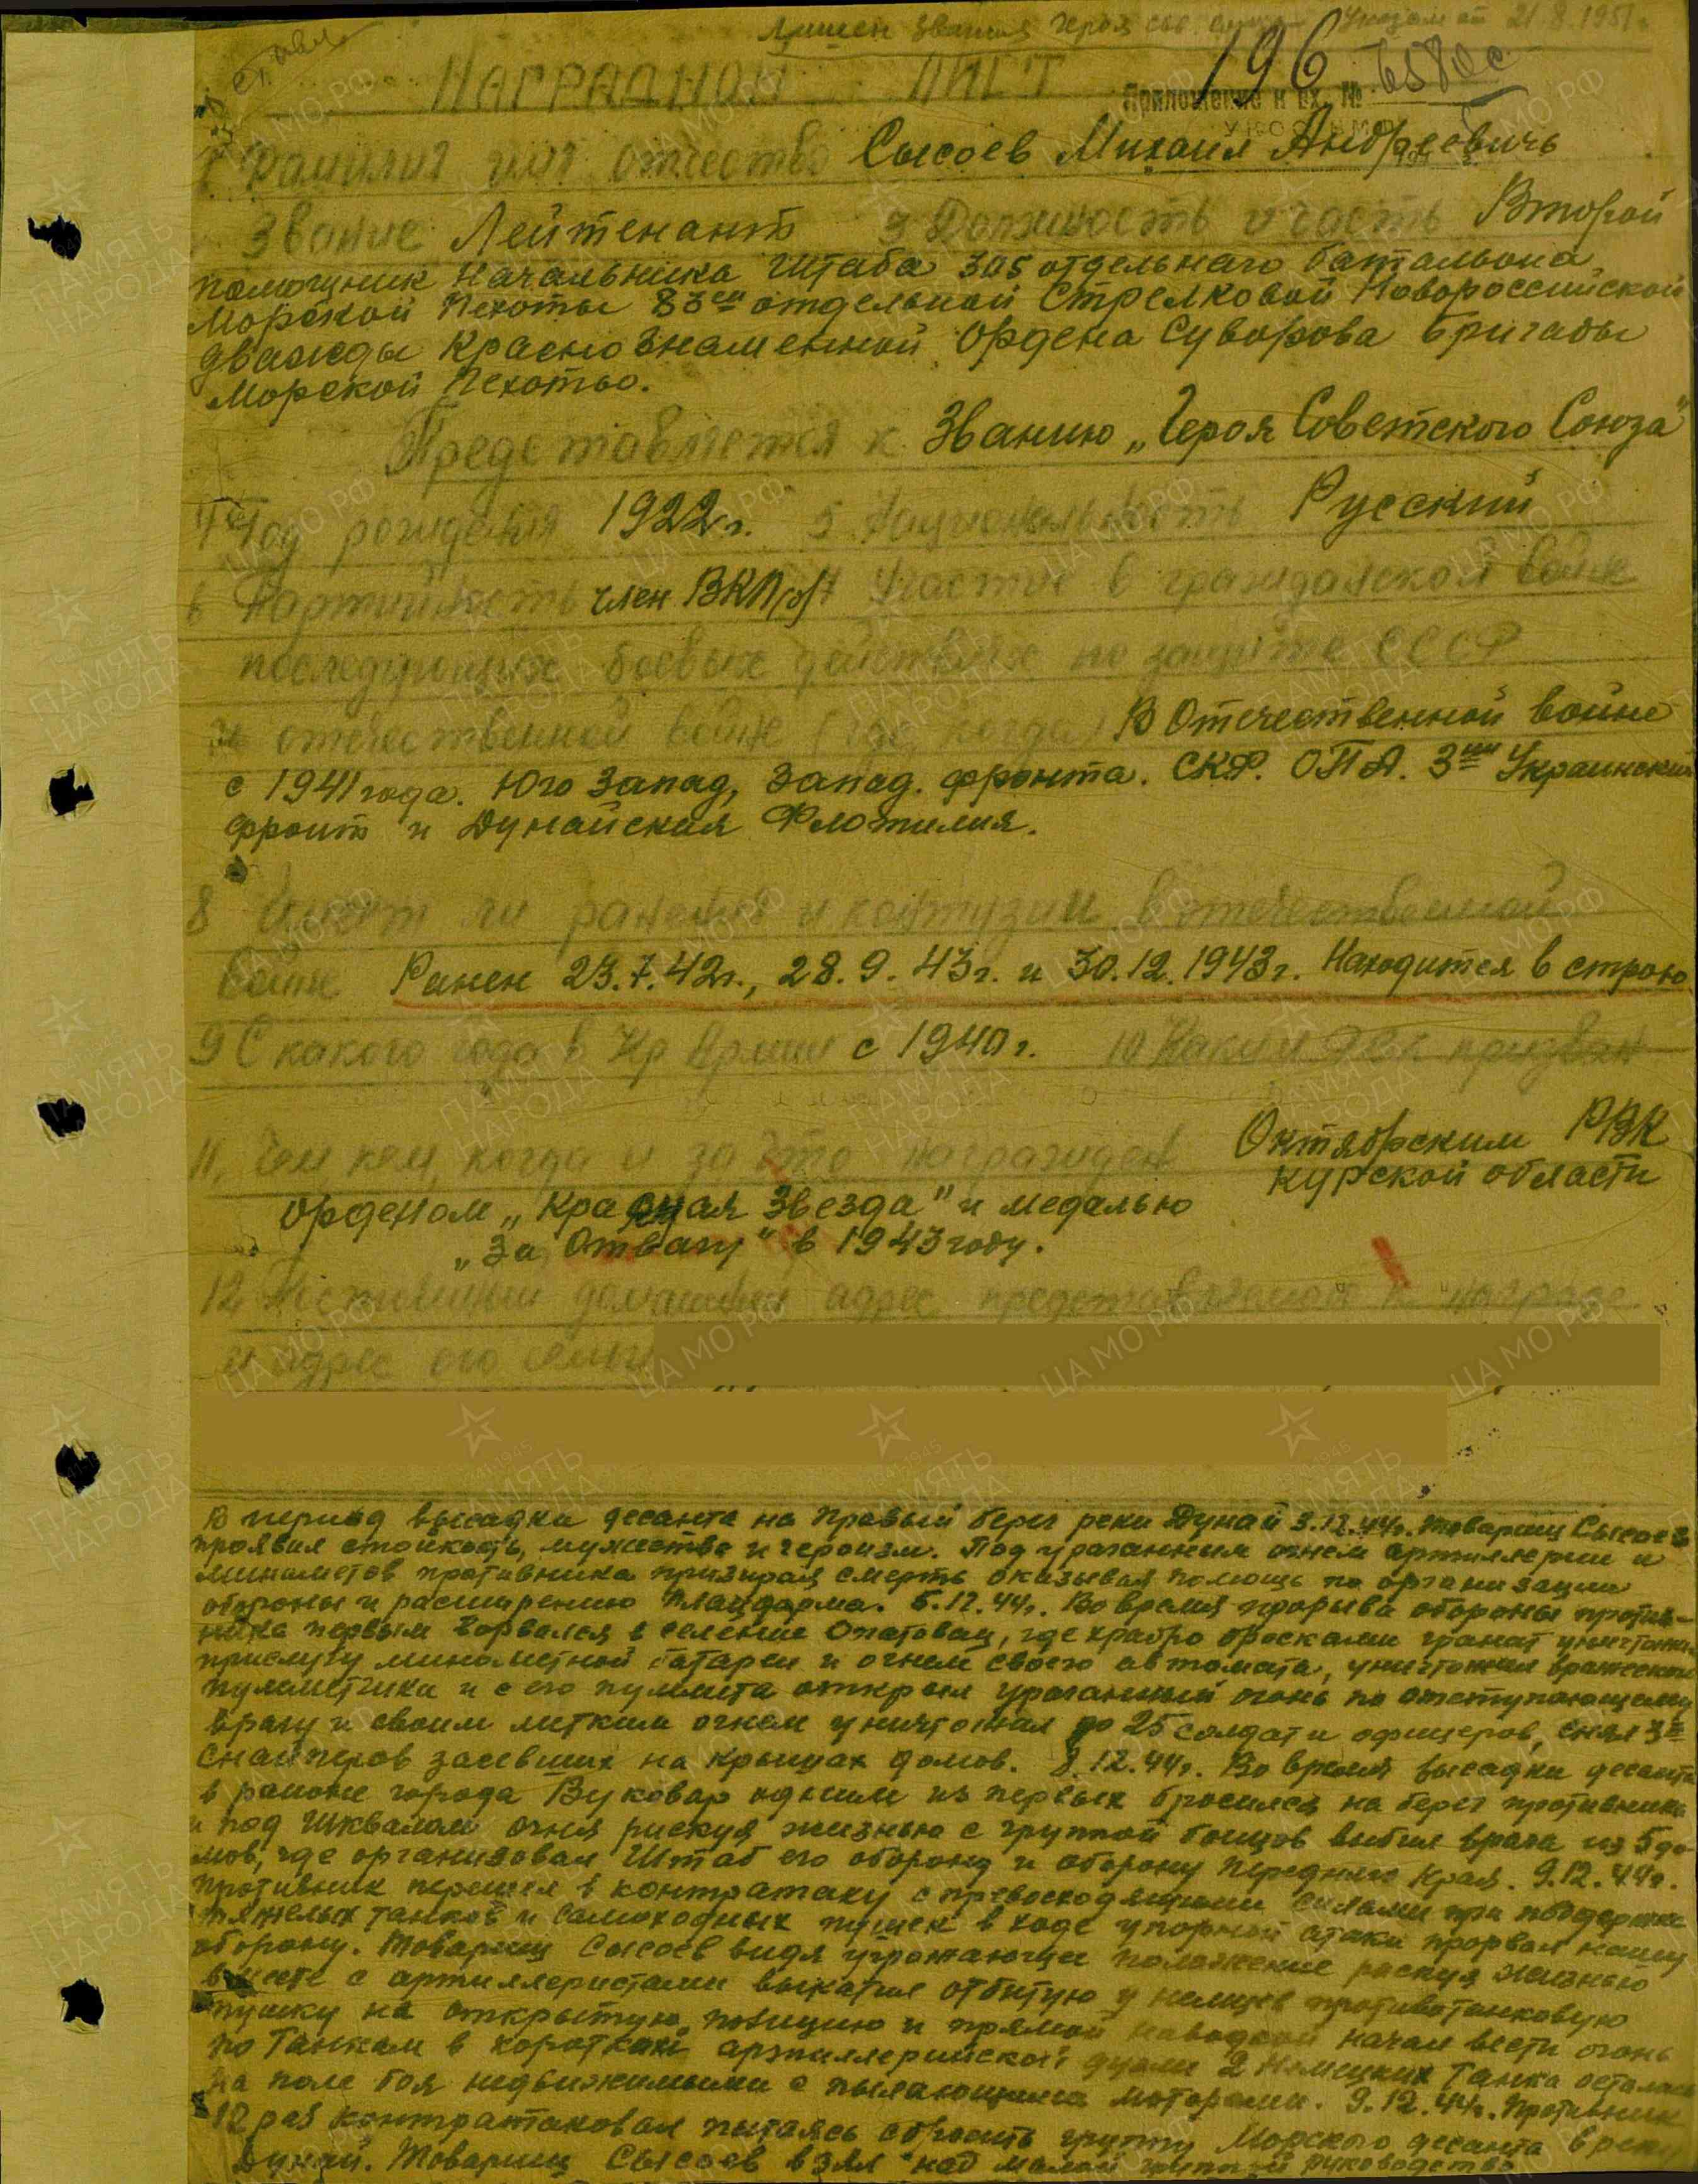 Лишен звания Героя Сов. Указом от 21.8.1951г.
196
6580с
НАГРАДНОЙ ЛИСТ
Приложение к вх. №
1 Фамилия имя отчество Сысоев Михаил Андреевичь
Звание Лейтенант 3 Должность и часть Второй
помощник Начальника Штаба 305 отдельнаго батальона
Морской Пехоты 83ей отдельной Стрелковой Новороссийской
дважды Краснознаменной Ордена Суворова бригады
Морской Пехоты.
Представляется к Званию „Героя Советского Союза"
4 Год рождения 1922г. 5 Национальность Русский
6 Партийность член ВКП(б) 7 Участие в гражданской войне
последующих боевых действиях по защите СССР
и отечественной войне (где, когда) В Отечественной войне
с 1941 года. Юго Запад, Запад. фронта. СКФ. ОПА. 3ий Украинский
фронт и Дунайская Флотилия.
8 Имеет ли ранения и контузии в отечественной
войне Ранен 23.7.42г., 28.9.43г. и 30.12.1943г. Находится в строю
9 С какого года в Кр Армии с 1940г. 10 Каким РВК призван
Октябрским РВК
Курской области
11. Чем, кем, когда и за что награжден
Орденом „Красная Звезда" и медалью
„За Отвагу" в 1943 году.
12 Постоянный домашний адрес представляемого к награде
и адрес его семьи
В период высадки десанта на правый берег реки Дунай 3.12.44г. товарищ Сысоев
проявил стойкость, мужество и героизм. Под ураганным огнем артиллерии и
минометов противника призирая смерть оказывал помощь по организации
обороны и расширению плацдарма. 5.12.44г. Во время прорыва обороны против-
ника первым ворвался в селение Опатовац, где храбро бросками гранат уничтожил
прислугу минометной батареи и огнем своего автомата, уничтожил вражеского
пулеметчика и с его пулемета открыл ураганный огонь по отступающему
врагу и своим метким огнем уничтожил до 25 солдат и офицеров, снял 3х
снайперов засевших на крышах домов. 8.12.44г. Во время высадки десанта
в районе города Вуковар одним из первых бросился на берег противника
и под Шквалом огня рискуя жизнью с группой бойцов выбил врага из 5 до-
мов, где организовал Штаб его оборону и оборону переднего Края. 9.12.44г.
противник перешел в контратаку с превосходящими силами при поддержке
тяжелых танков и самоходных пушек в ходе упорной атаки прорвал нашу
оборону. Товарищ Сысоев видя угрожающее положение рискуя жизнью
вместе с артиллеристами выкатил отбитую у немцев противотанковую
пушку на открытую позицию и прямой наводкой начал вести огонь
по Танкам в короткой артиллерийской дуэли 2 Немецких Танка остались
на поле боя недвижимыми с пылающими моторами. 9.12.44г. Противник
10 раз контратаковал пытаясь сбросить группу Морского десанта в реку
Дунай. Товарищ Сысоев взял над малой группой руководство